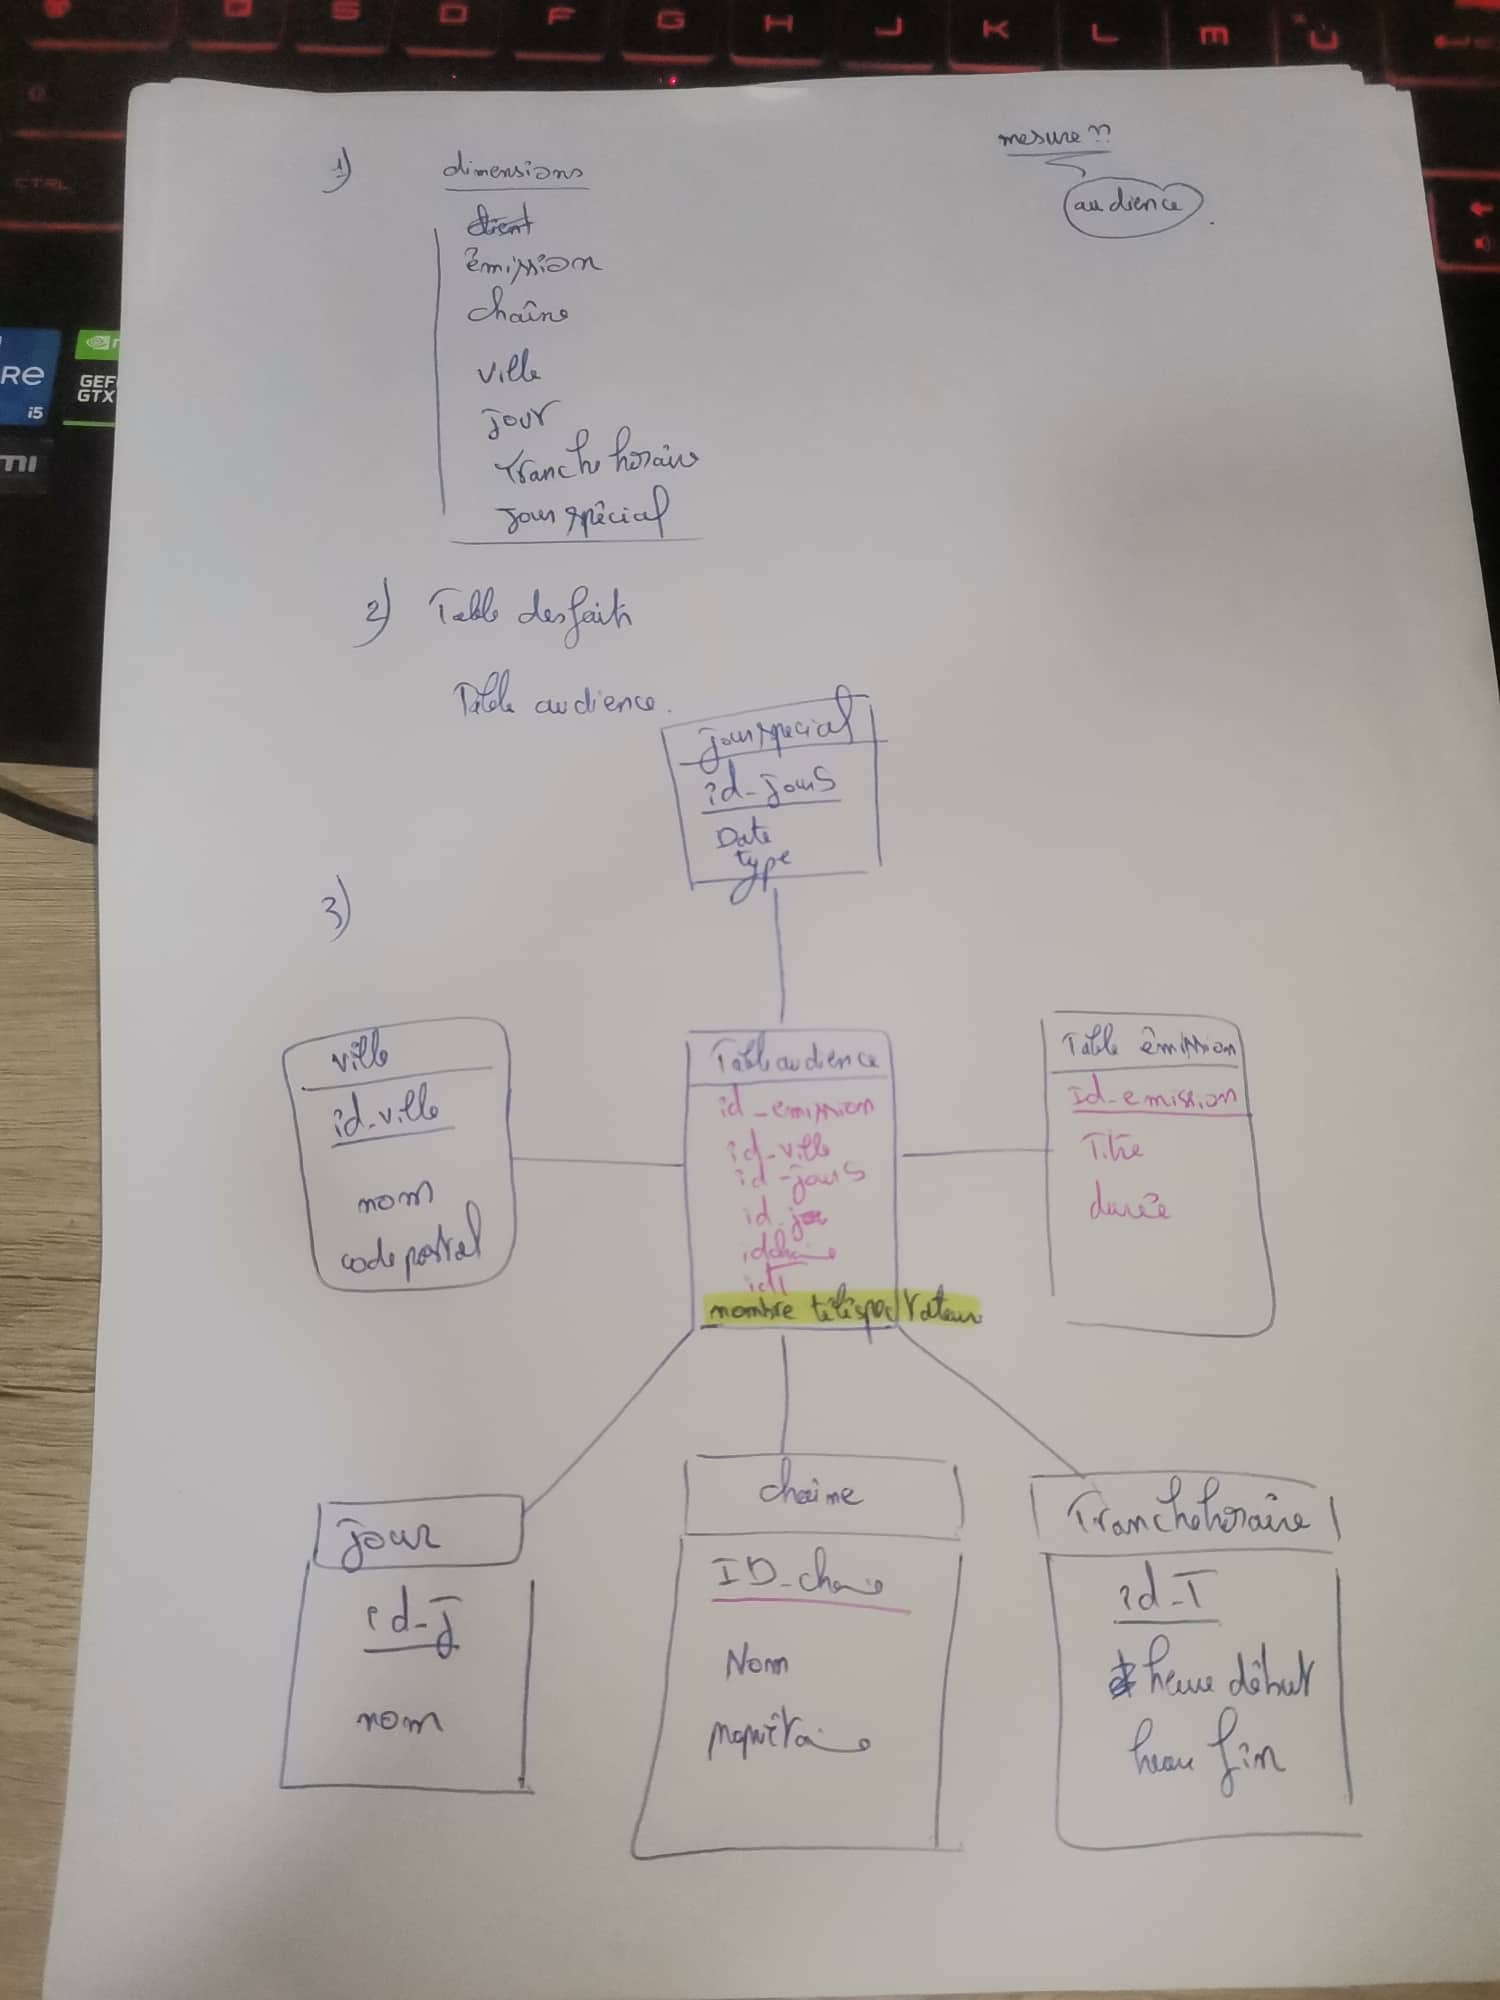 Q S D F G H J K L M Ù
CTRL
RE
i5
GEF
GTX
MI
1) dimensions
mesure ??
audience
client
émission
chaîne
ville
jour
Tranche horaire
jour spécial
2) Table des faits
Table audience.
jour special
id_jourS
Date
type
3)
ville
id_ville
nom
code postal
Table audience
id_emission
id_ville
id_jourS
id_jo
idchaine
idT
nombre téléspectateur
Table émission
Id_emission
Titre
durée
jour
id_J
nom
chaine
ID_chaine
Nom
propriétaire
Tranche horaire
id_T
heure début
heure fin